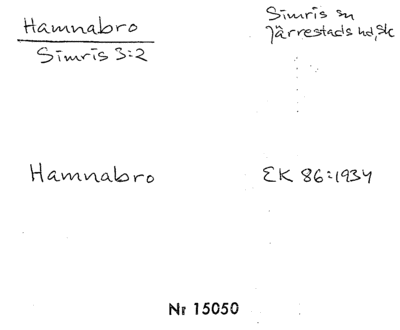 Hamnabro
Simris 3:2
Simris sn
Järrestads hd, Sk
Hamnabro
EK 86:1934
Nr 15050